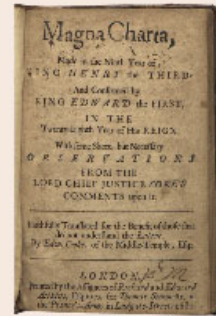 Magna Charta,
Made in the Ninth Year of
KING HENRY the THIRD,
And Confirmed by
KING EDWARD the FIRST,
IN THE
Twenty-eighth Year of His REIGN.
With some Short, but Necessary
OBSERVATIONS
FROM THE
LORD CHIEF JUSTICE COKE'S
COMMENTS upon it.
Faithfully Translated for the Benefit of those that
do not understand the
By Edw. Cooke, of the Middle-Temple, Esq;
LONDON,
Printed by the Assignees of Richard and Edward
Atkins, for Thomas Simmons, at
the Princes Arms in Ludgate-Street,